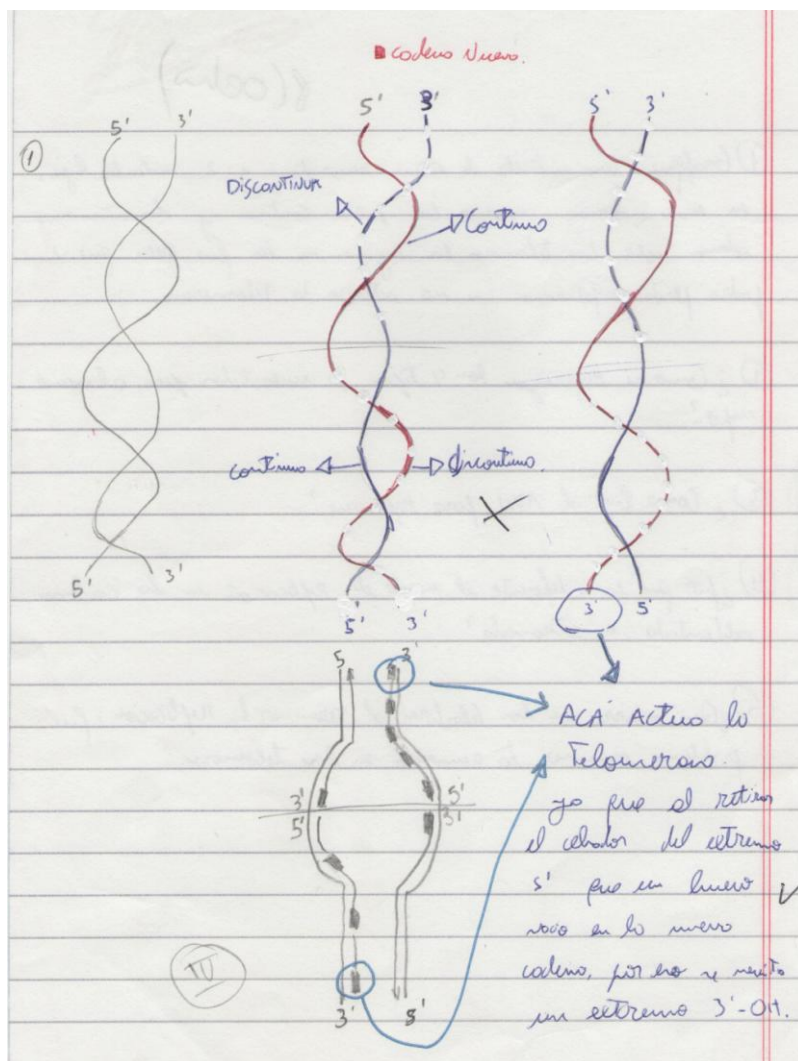 Cadena Nueva.
5' 3' 5' 3' 5' 3'
①
DISCONTINUA
Continuo
continuo
discontinuo.
5' 3' 5' 3' 3' 5'
5 3'
ACÁ Actua la
Telomerasa.
ya que al retirar
el cebador del extremo
5' que un hueco
vacio en la nueva
cadena, por eso se necesita
un extremo 3'-OH.
3' 5'
5' 3'
IV
3' 5'